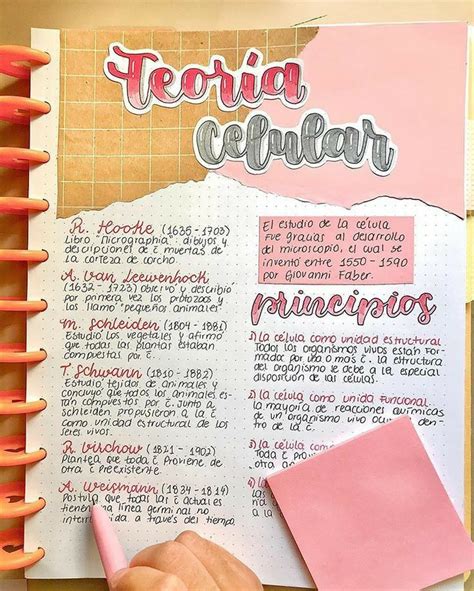 Teoría
Celular
R. Hooke (1635 - 1703)
Libro "Micrographia": dibujos y
descripciones de c̄ muertas de
la corteza de corcho
A. Van Leewenhock
(1632 - 1723) observó y describió
por primera vez los protozoos y
los llamó "pequeños animales"
M. Schleiden (1804 - 1881)
Estudió los vegetales y afirmó
que todas las plantas estaban
compuestas por c̄.
T. Schwann (1810 - 1882)
Estudió tejidos de animales y
concluyó que todos los animales están
compuestos por c̄. Junto a
Schleiden propusieron a la c̄
como unidad estructural de los
seres vivos.
R. Virchow (1821 - 1902)
Plantea que toda c̄ proviene de
otra c̄ preexistente.
A. Weismann (1834 - 1814)
Postula que todas las c̄ actuales
tienen una línea germinal no
a través del tiempo
El estudio de la célula
fue gracias al desarrollo
del microscopio, el cual se
inventó entre 1550 - 1590
por Giovanni Faber.
principios
1) la célula como unidad estructural
Todos los organismos vivos están for-
mador por una o más c̄. la estructura
del organismo se debe a la especial
disposición de las células.
2) la célula como unidad funcional.
la mayoría de reacciones químicas
de un organismo vivo den-
tro de
3) la célula como
Todas
otra